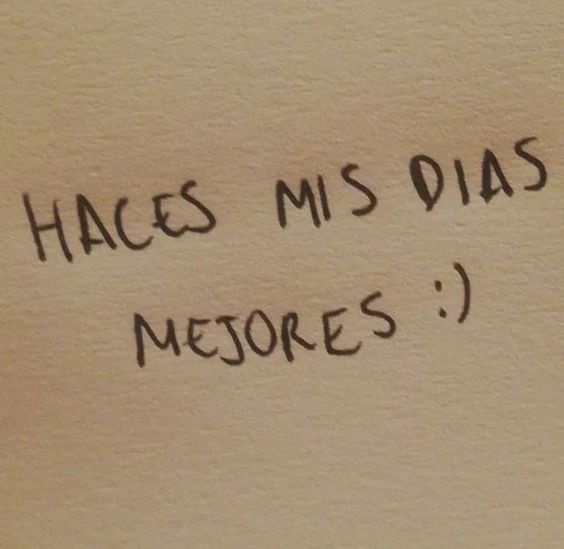 HACES MIS DIAS
MEJORES :)